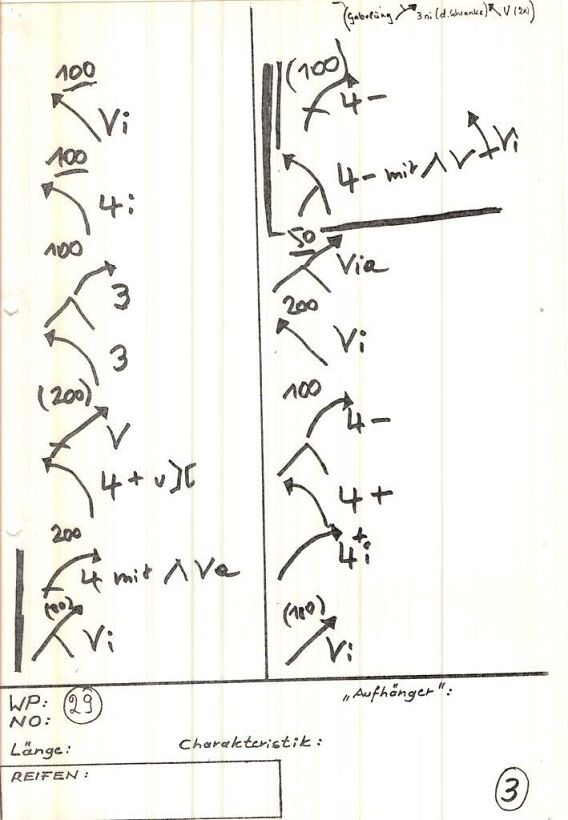 (Gabelung 3 ni (d. Schranke) V (2x)
100
Vi
100
4i
100
3
3
(200)
V
4 + v ][
200
4 mit Λ Va
Vi
(100)
4 -
4 - mit Λ V + Vi
50
Via
200
Vi
100
4 -
4 +
4 i
+
(100)
Vi
WP: 29
NO:
„Aufhänger“:
Länge:
Charakteristik:
REIFEN:
3